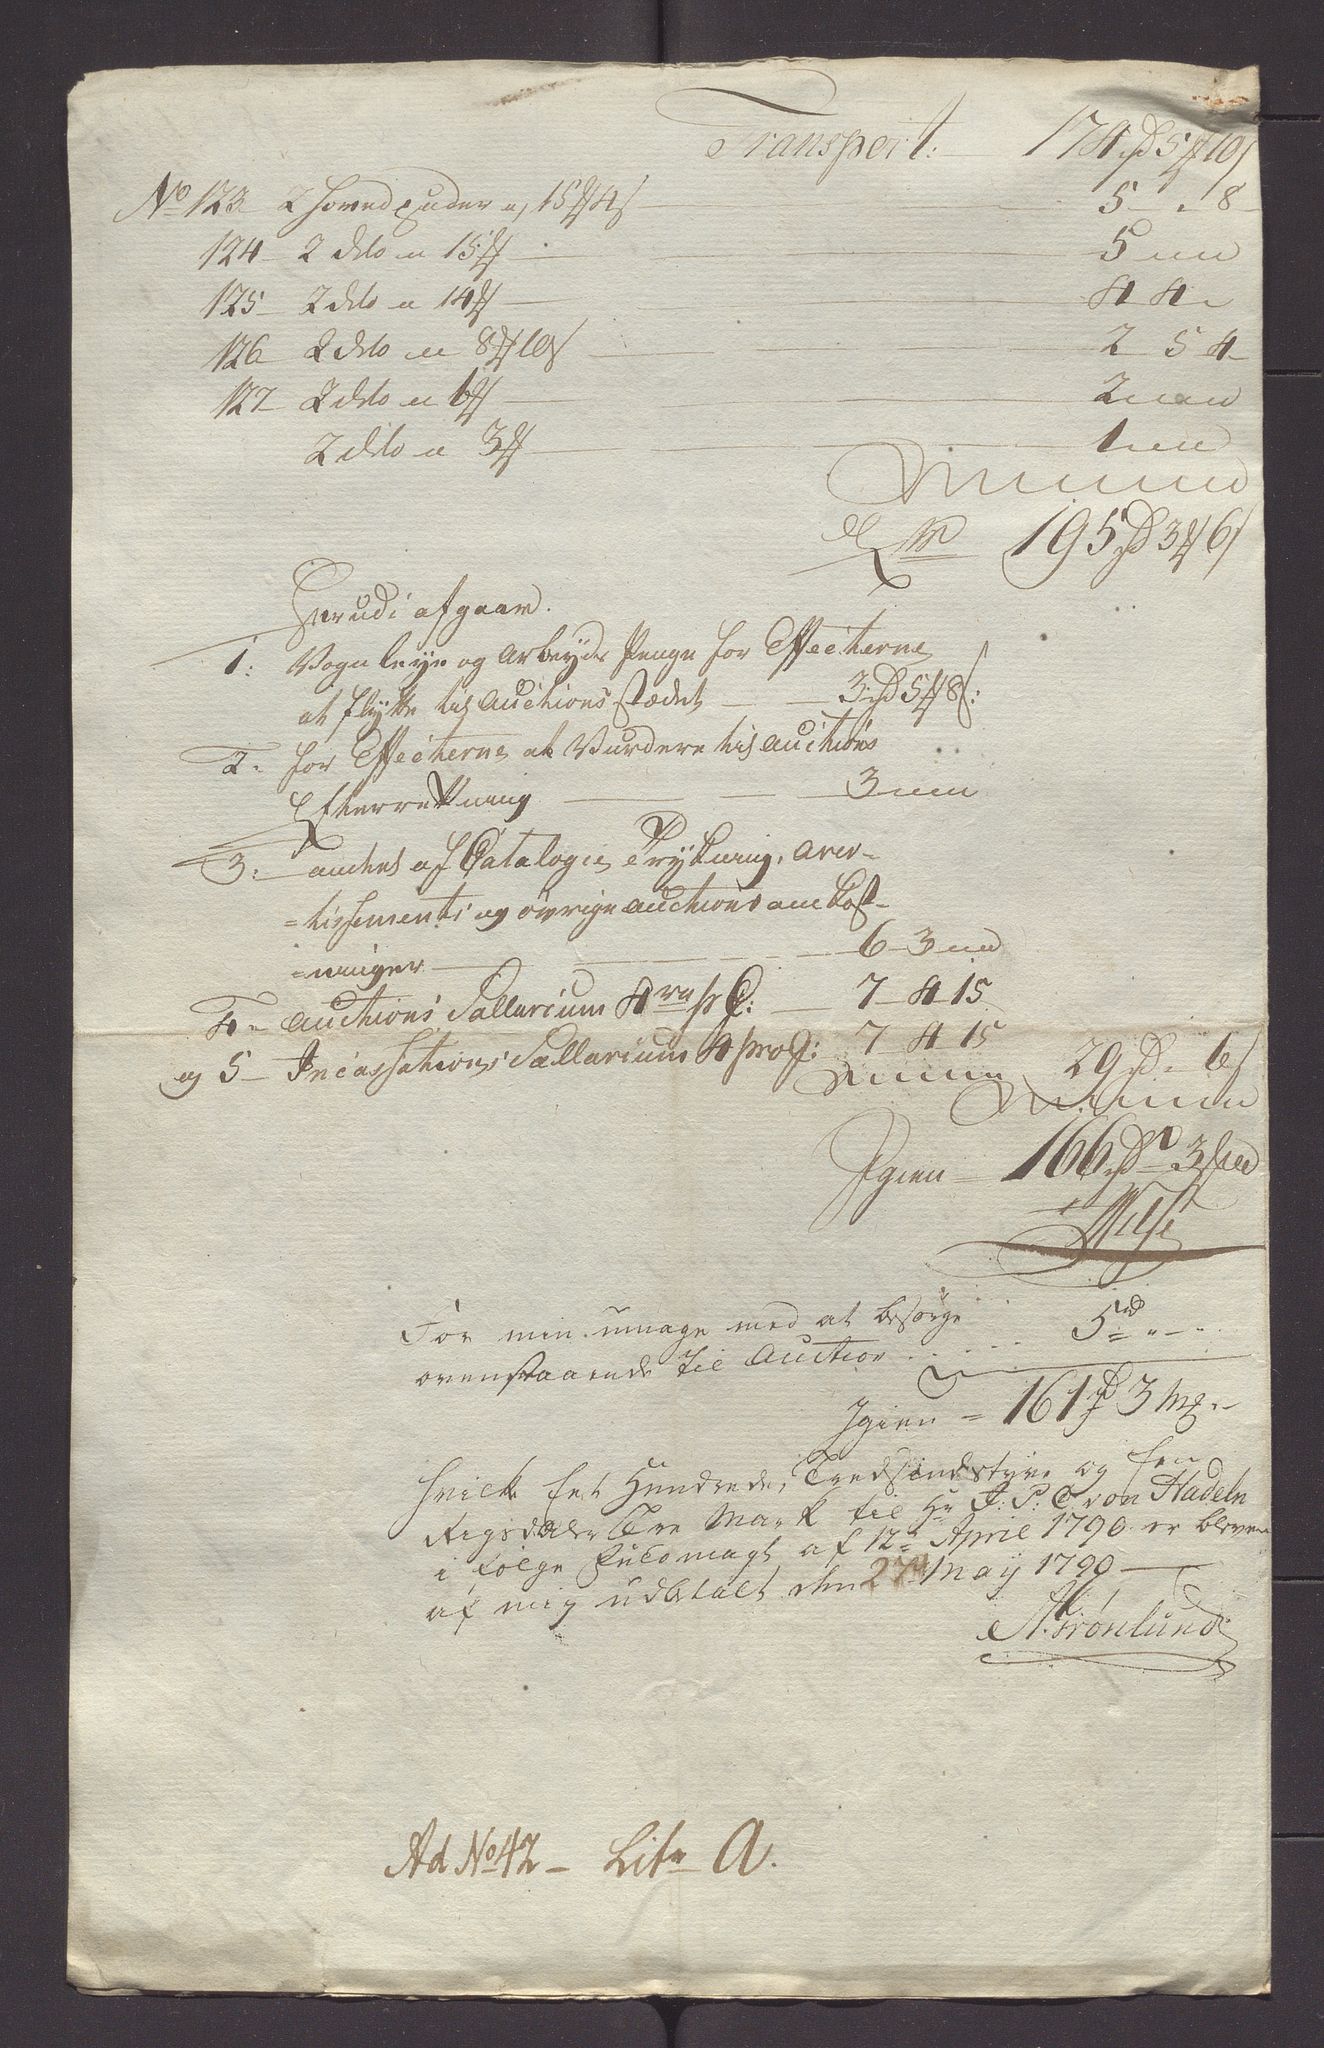 Transport: 174 rd 5 mk 10 s
No 123 2 Hovedpuder a 15 mk 4 s — 5 " 8
124 2 dito a 15 mk — 5 " "
125 2 dito a 14 mk — 4 4 "
126 2 dito a 8 mk 10 s — 2 5 4
127 2 dito a 6 mk — 2 " "
2 dito a 3 mk — 1 " "
195 rd 3 mk 6 s
Herudi afgaar.
1: Vogn leye og Arbeyds Penge for Effecterne
at flytte til Auctions Stædet — 3 rd 5 mk 8 s:
2 - for Effecterne at Vurdere til Auctions
Efterretning — 3 " "
3: andel af Catalogii Trykning, aver-
=tissements og øvrige auctions ombkost-
=ninger — 6 3 "
4 - Auctions Sallarium 4 pr C: 7 4 15
og 5 - Incassations Sallarium 4 pro C: 7 4 15
29 rd " 6 s
Igien — 166 rd 3 mk
For min umage med at besørge
ovenstaaende til Auction . . . . . 5 rd " - "
Igien = 161 rd 3 mk "-
hvilke Eet Hundrede, Tredsindstyve og Een
Rigsdaler Tre Mark til Hr J: P: C von Hadeln
i følge Fuldmagt af 12te April 1790 er bleven
af mig udbetalt den 27 May 1790 —
A. Grönlund
Ad No 42 - Litr A.